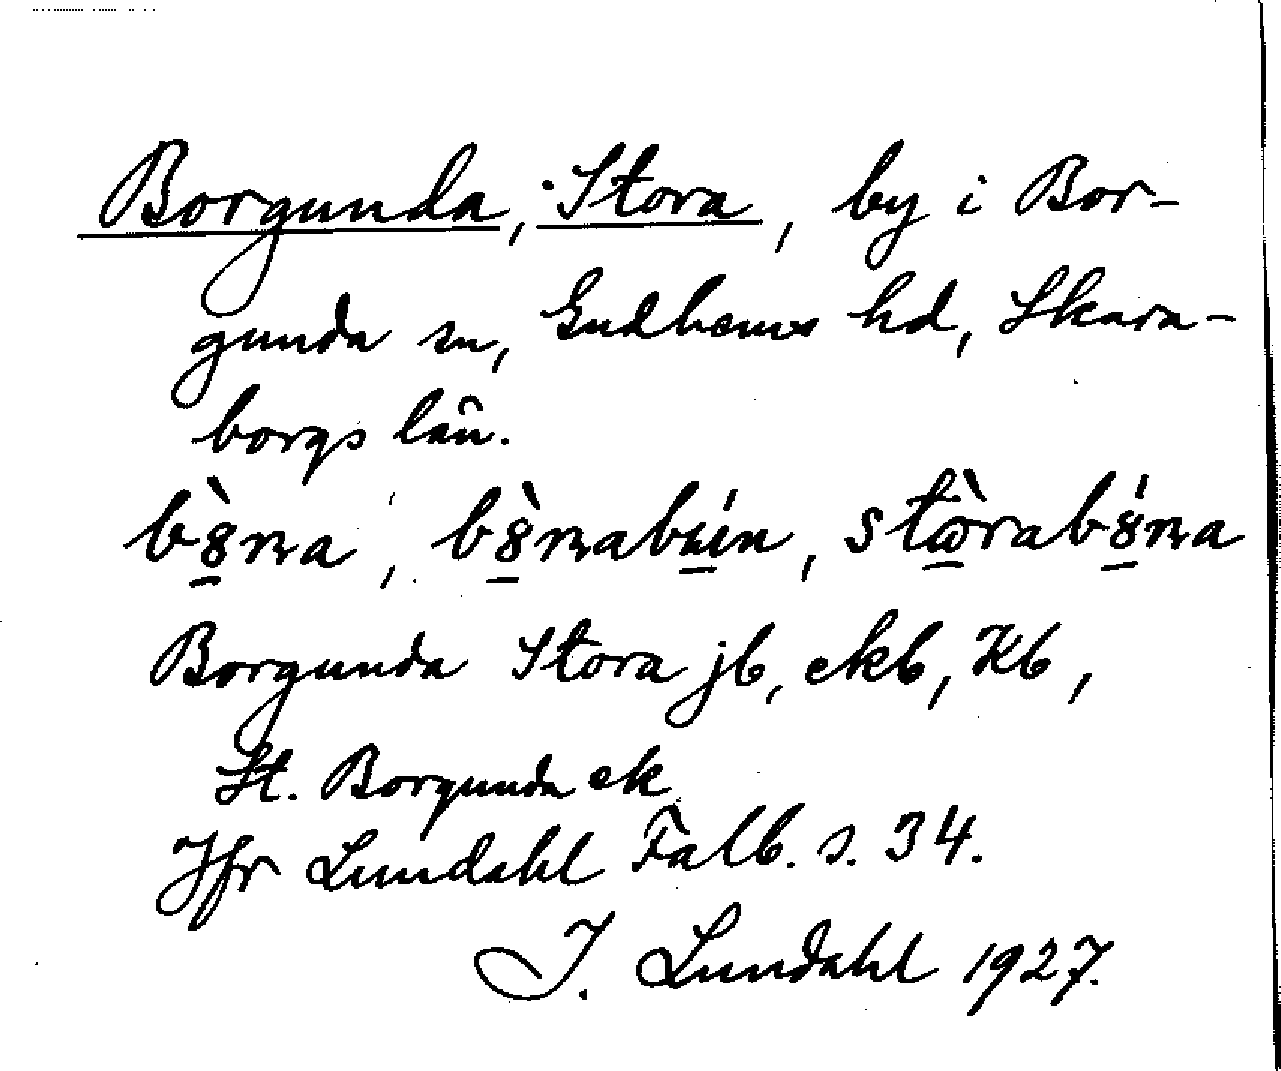 Borgunda, Stora, by i Bor-
gunda sn, Gudhems hd, Skara-
borgs län.
bȣ̱̀na, bȣ̱̀nabẏ́n, stὼ̱rabȣ̱́na
Borgunda Stora jb, ekb, Kb,
St. Borgunda ek
Jfr Lundahl Falb. s. 34.
I. Lundahl 1927.